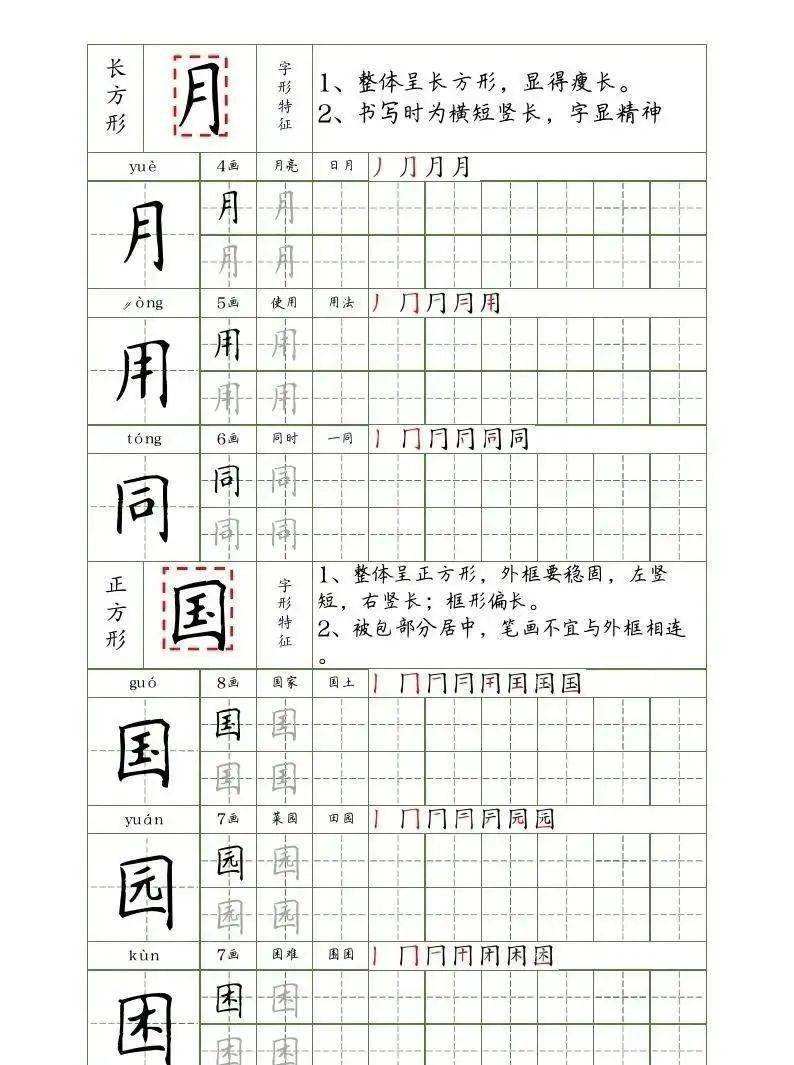 长方形 月 字形特征
1、整体呈长方形，显得瘦长。
2、书写时为横短竖长，字显精神
yuè 4画 月亮 日月 丿 ⺆ 月 月
月 月 月
月 月
yòng 5画 使用 用法
用 用 用
用 用
tóng 6画 同时 一同
同 同 同
同 同
正方形 国 字形特征
1、整体呈正方形，外框要稳固，左竖
短，右竖长；框形偏长。
2、被包部分居中，笔画不宜与外框相连
。
guó 8画 国家 国土
国 国 国
国 国
yuán 7画 菜园 田园
园 园 园
园 园
kùn 7画 困难 围困
困 困 困
困 困